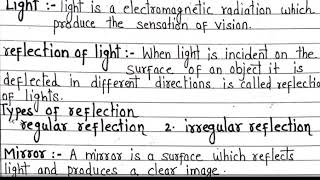 Light :- light is a electromagnetic radiation which
produce the sensation of vision.
reflection of light :- When light is incident on the
surface of an object it is
deflected in different directions. is called reflectio
of lights.
Types of reflection
regular reflection 2. irregular reflection
Mirror :- A mirror is a surface which reflects
light and produces a clear image.